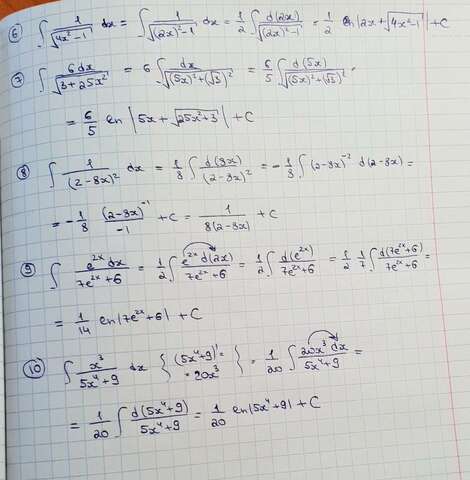 6) ∫ 1/√(4x²-1) dx = ∫ 1/√((2x)²-1) dx = 1/2 ∫ d(2x)/√((2x)²-1) = 1/2 ln|2x+√(4x²-1)| + C
7) ∫ 6dx/√(3+25x²) = 6 ∫ dx/√((5x)²+(√3)²) = 6/5 ∫ d(5x)/√((5x)²+(√3)²) =
= 6/5 ln|5x+√(25x²+3)| + C
8) ∫ 1/(2-8x)² dx = 1/8 ∫ d(8x)/(2-8x)² = -1/8 ∫ (2-8x)⁻² d(2-8x) =
= -1/8 (2-8x)⁻¹/-1 + C = 1/(8(2-8x)) + C
9) ∫ e²ˣdx/(7e²ˣ+6) = 1/2 ∫ e²ˣd(2x)/(7e²ˣ+6) = 1/2 ∫ d(e²ˣ)/(7e²ˣ+6) = 1/2 · 1/7 ∫ d(7e²ˣ+6)/(7e²ˣ+6) =
= 1/14 ln|7e²ˣ+6| + C
10) ∫ x³/(5x⁴+9) dx {(5x⁴+9)' = = 20x³} = 1/20 ∫ 20x³dx/(5x⁴+9) =
= 1/20 ∫ d(5x⁴+9)/(5x⁴+9) = 1/20 ln|5x⁴+9| + C